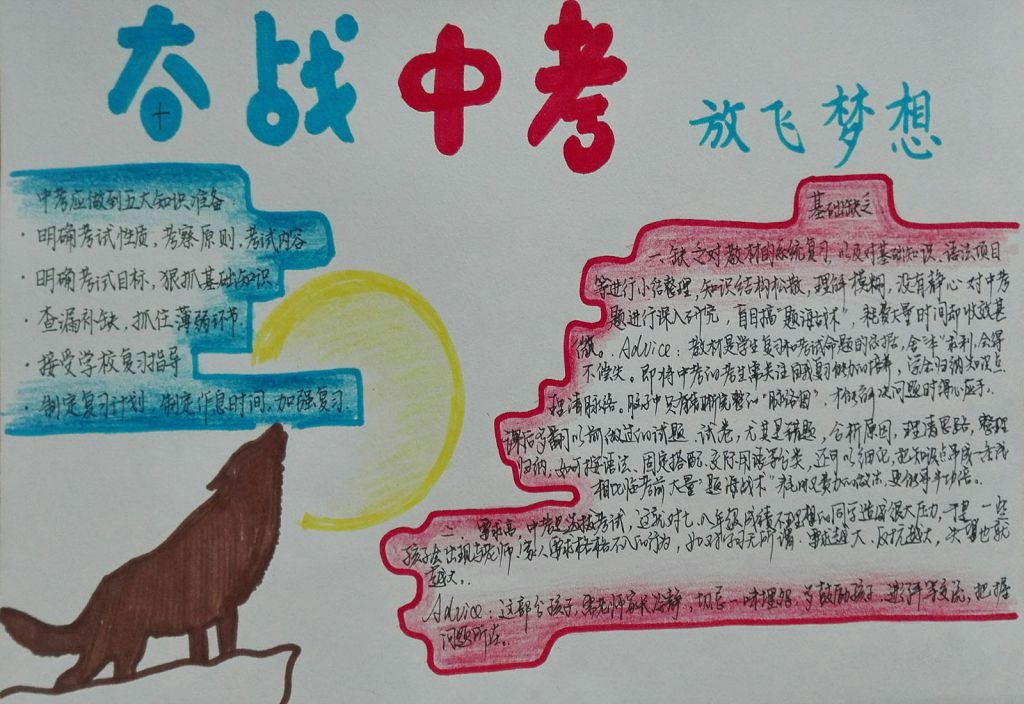 奋战中考
放飞梦想
中考应做到五大知识准备
· 明确考试性质,考察原则,考试内容
· 明确考试目标,狠抓基础知识
· 查漏补缺,抓住薄弱环节.
· 接受学校复习指导
· 制定复习计划 制定作息时间,加强复习.
基础缺乏
一、缺乏对教材的系统复习,以及对基础知识、语法项目
等进行小结整理,知识结构松散,理解模糊,没有静心对中考
题进行深入研究,盲目搞“题海战术”,耗费大量时间却收效甚
微。Advice:教材是学生复习和考试命题的依据,舍“本”求利,会得
不偿失。即将中考的考生需关注自我复习能力的培养,学会归纳知识点
理清脉络。脑中只有清晰完整的“脉络图”,才能在解决问题时得心应手.
课后多翻以前做过的试题、试卷,尤其是错题,分析原因,理清思路,整理
归纳,如可按语法、固定搭配、交际用语等分类,还可以细化,把知识点串成一条线
相比临考前大量“题海战术”耗时又费力的做法,要来得事半功倍。
二、需求高,中考是选拔考试,这就对七、八年级成绩不理想的同学造成很大压力,于是一些
孩子会出现与老师、家人要求格格不入的行为,如对学习无所谓.要求越大,反抗越大,失望也就
越大.
Advice:这部分孩子,需老师家长冷静,切忌一味埋怨.多鼓励孩子,进行平等交流,把握
问题所在。